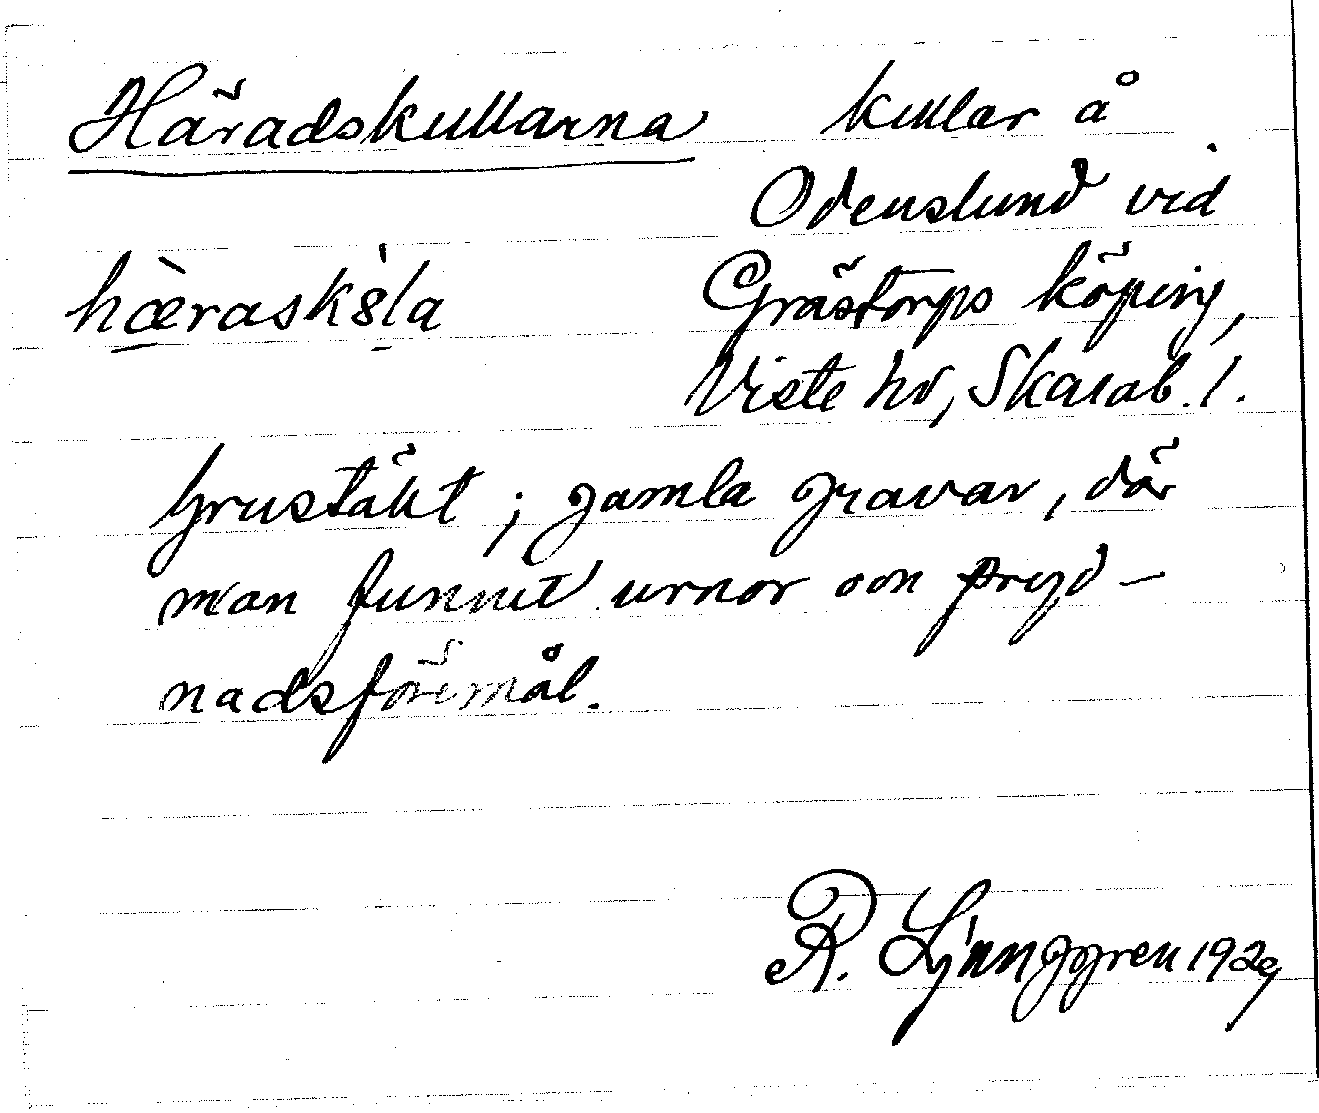 Häradskullarna kullar å
Odenslund vid
hæ̀rask8̀la Grästorps köping,
Viste hd, Skarab. l.
Grustäkt; gamla gravar, där
man funnit urnor och pryd-
nadsföremål.
R. Ljunggren 1929